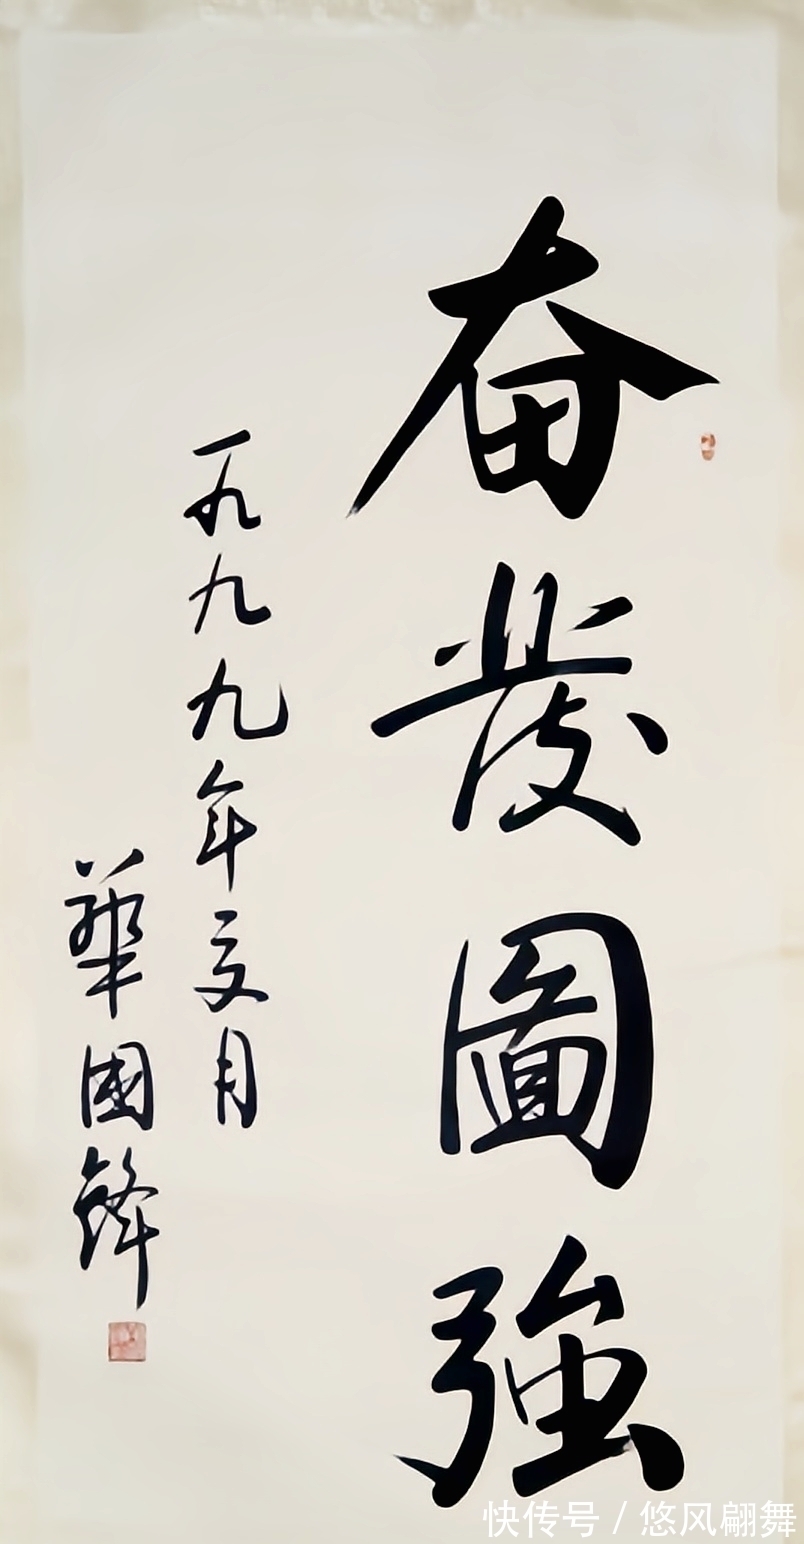 奋發圖強
一九九九年夏月
華國鋒
快传号 / 悠风翩舞